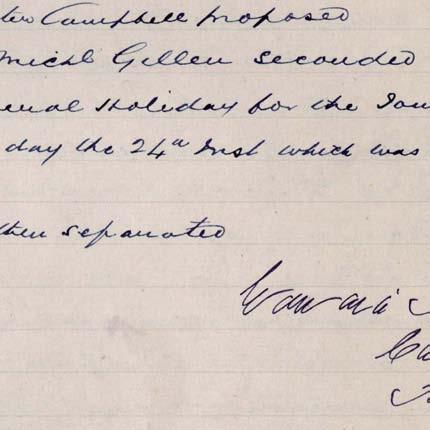 ter Campbell proposed
Michl Gillen seconded
eneral Holiday for the Tow
day the 24th Inst which was
then separated